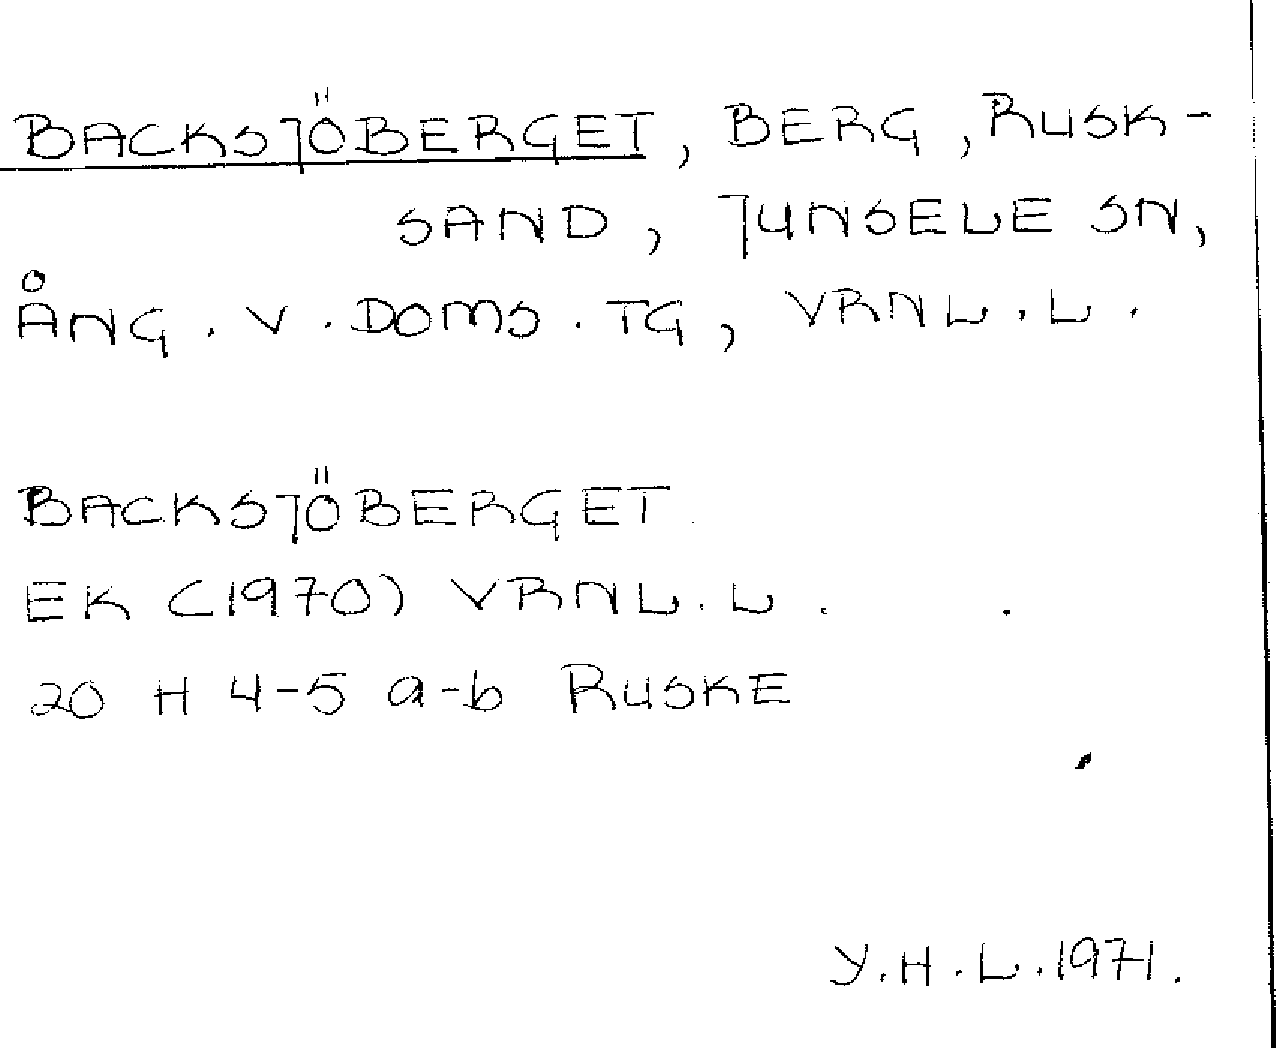 BACKSJÖBERGET, BERG, RUSK-
SAND, JUNSELE SN,
ÅNG. V. DOMS. TG, VRNL. L.
BACKSJÖBERGET.
EK (1970) VRNL. L.
20 H 4-5 a-b RUSKE
Y.H.L. 1971.